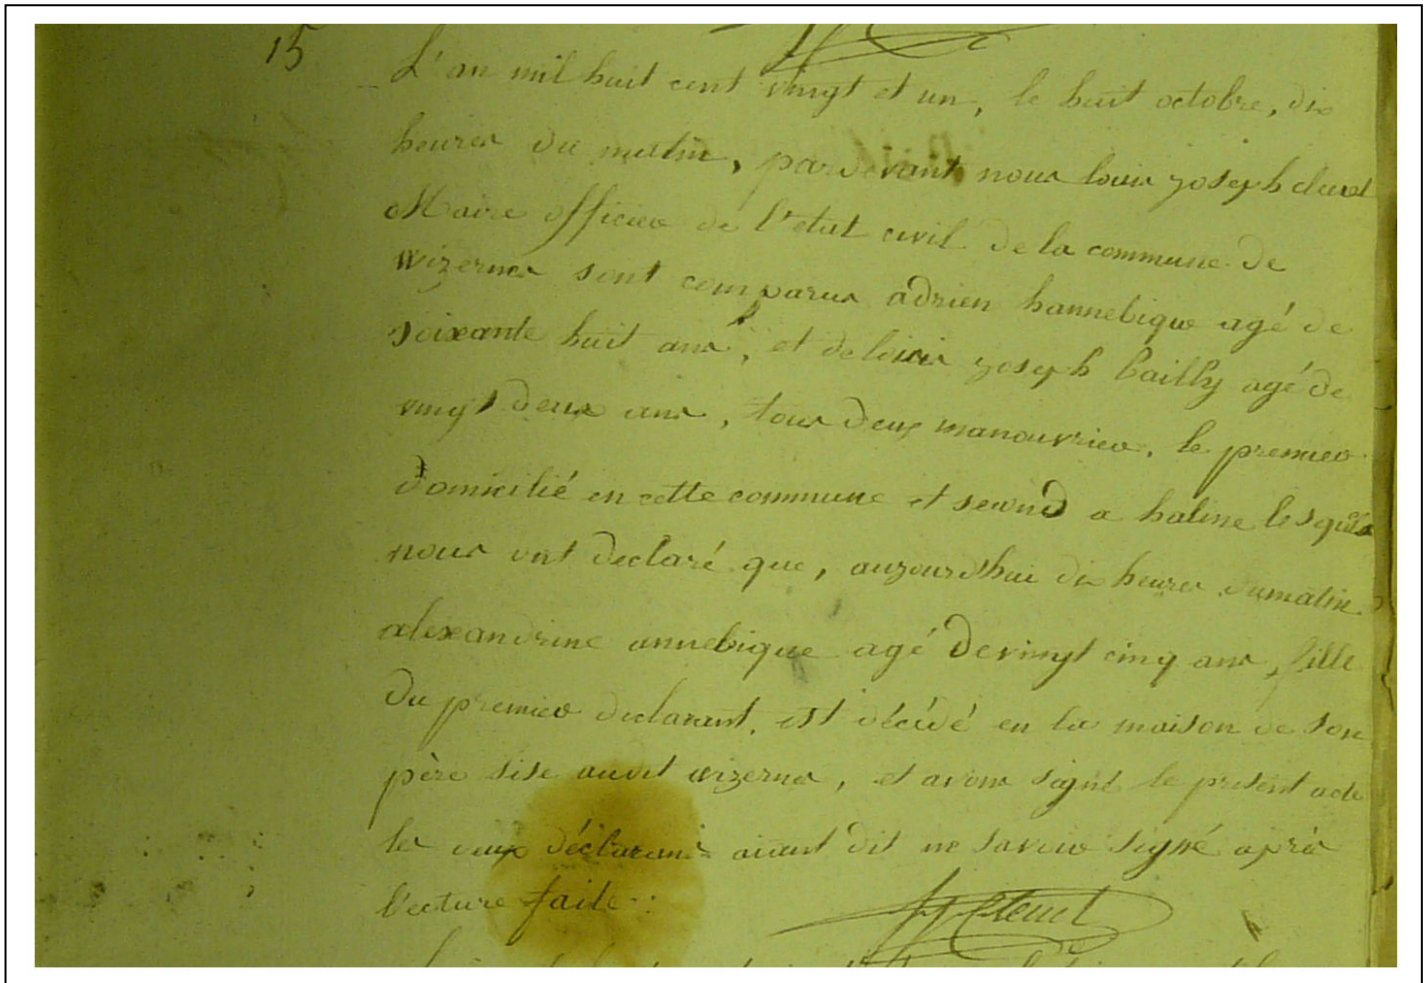 15
L'an mil huit cent vingt et un, le huit octobre, dix
heures du matin, pardevant nous louis joseph
Maire officier de l'etat civil de la commune de
wizernes sont comparus adrien hannebique agé de
soixante huit ans, et de louis joseph bailly agé de
vingt deux ans, tous deux manouvrier, le premier
domicilié en cette commune et second a haline lesquels
nous ont declaré que, aujourd'hui dix heures du matin
alexandrine annebique agé de vingt cinq ans, fille
du premier declarant, est décédé en la maison de son
père sise audit wizernes, et avons signé le présent acte
les deux déclarans aiant dit ne savoir signé après
lecture faite